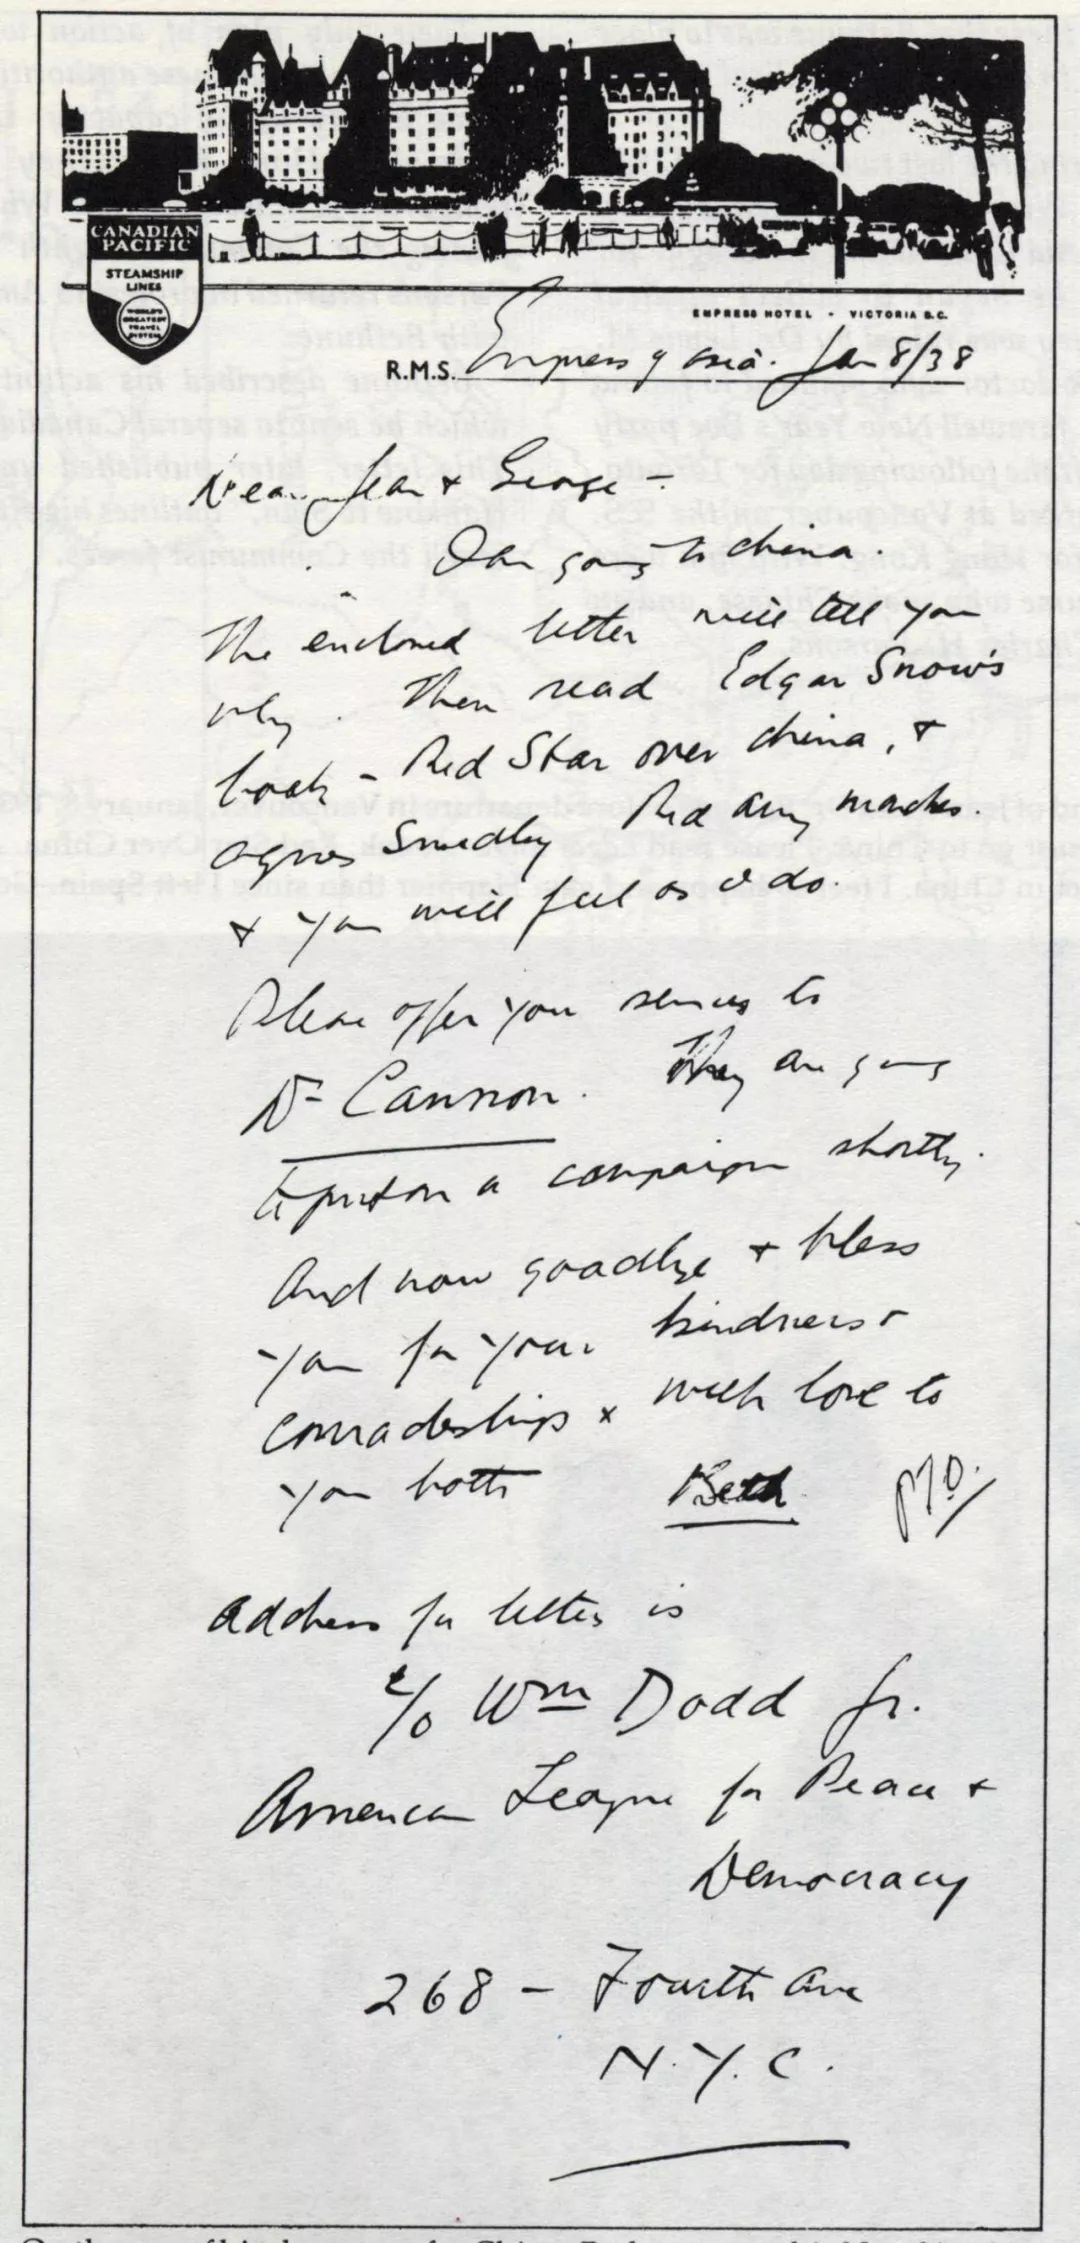 CANADIAN
PACIFIC
STEAMSHIP
LINES
WORLD'S
GREATEST
TRAVEL
SYSTEM
EMPRESS HOTEL - VICTORIA B.C.
R.M.S. Empress of Asia. Jan 8/38
Dear Jean + George -
I am going to China.
The enclosed letter will tell you
why. Then read Edgar Snow's
book - Red Star over China, +
Agnes Smedley Red Army marches.
+ you will feel as I do.
Please offer your services to
Dr Cannon. They are going
to put on a campaign shortly.
And now goodbye + bless
you for your kindness +
comradeships + with love to
you both Beth P.T.O.
Address for letters is
c/o Wm Dodd Jr.
American League for Peace +
Democracy
268 - Fourth Ave
N.Y.C.